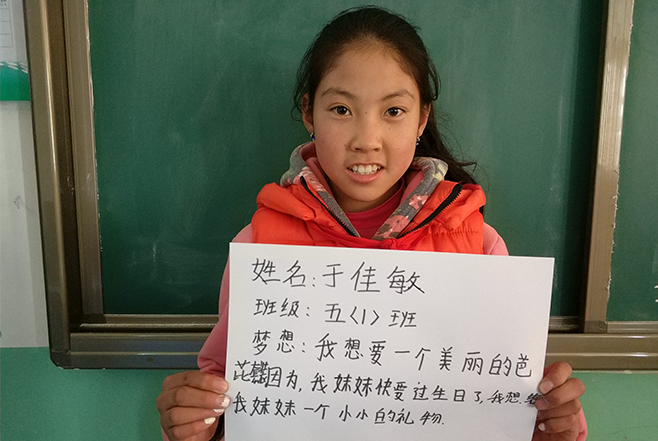 姓名:于佳敏
班级:五〈1〉班
梦想:我想要一个美丽的芭
因为,我妹妹快要过生日了,我想给
我妹妹一个小小的礼物.